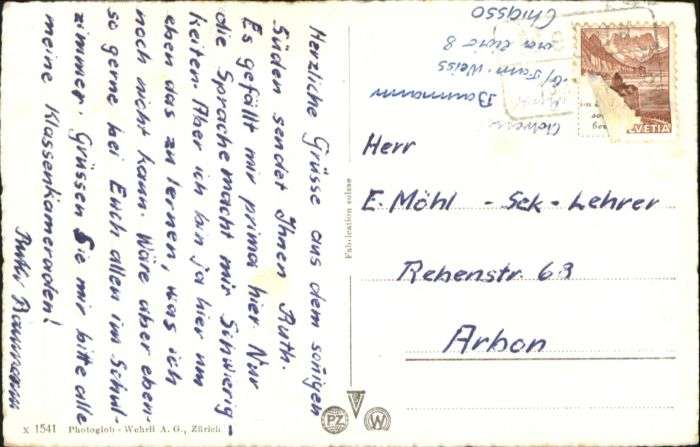 Herzliche Grüsse aus dem sonigen
Süden sendet Ihnen Ruth.
Es gefällt mir prima hier. Nur
die Sprache macht mir Schwierig-
keiten. Aber ich bin ja hier um
eben das zu lernen, was ich
noch nicht kann. Wäre aber eben-
so gerne bei Euch allen im Schul-
zimmer. Grüssen Sie mir bitte alle
meine Klassenkameraden!
Ruth Baumann
Baumann
Fam. Weiss
via 8
Chiasso
HELVETIA
Herr
E. Möhl - Sek-Lehrer
Rebenstr. 63
Arbon
Fabrication suisse
X 1541 Photoglob-Wehrli A. G., Zürich
PZ
W